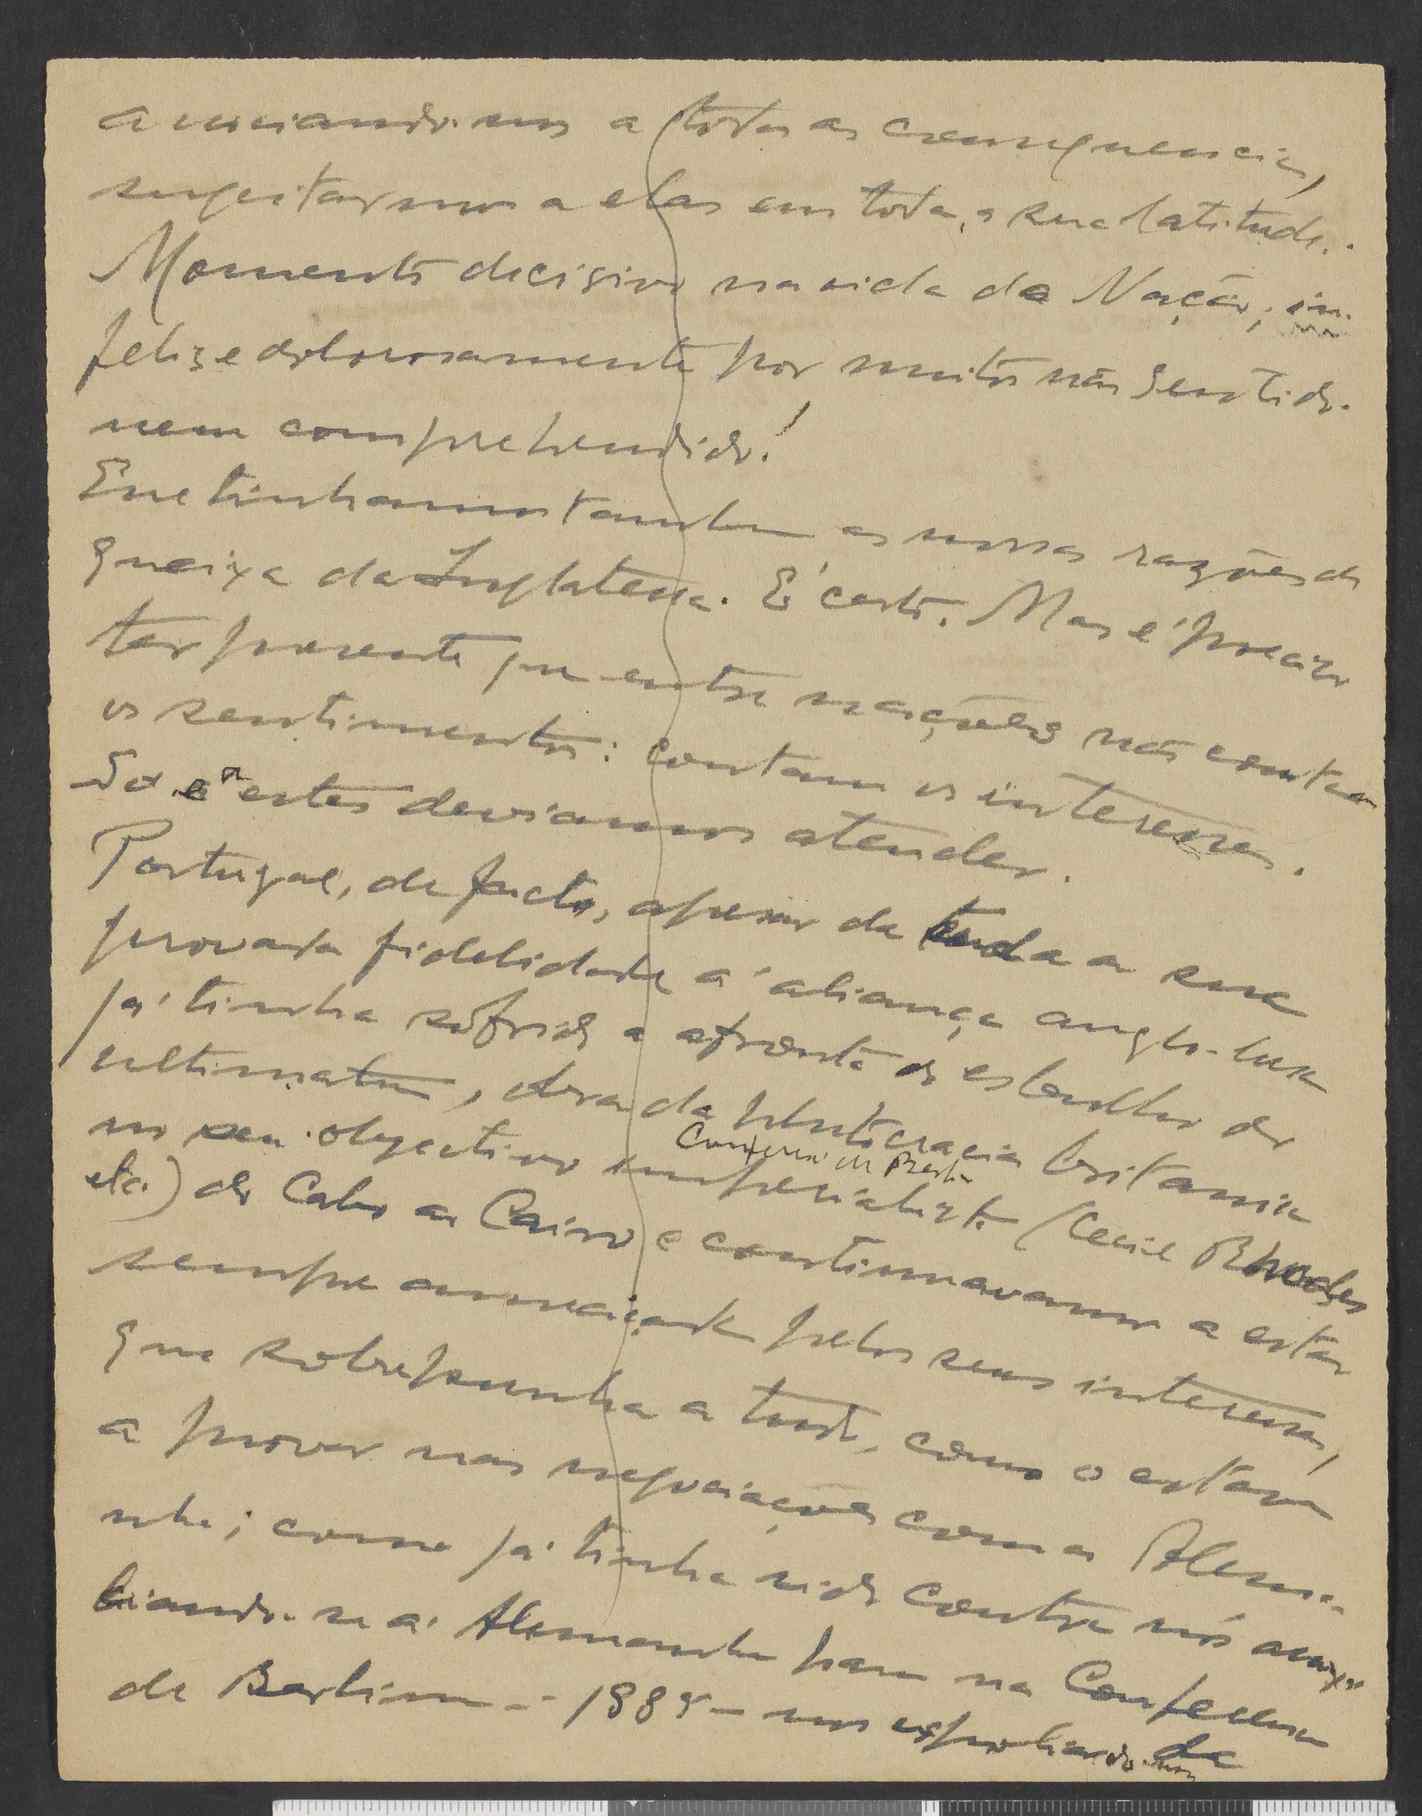 a todas as consequencias,
sugeitarmos a elas em toda a sua latitude.
Momento decisivo na vida da Nação; in-
feliz e dolorosamente por muitos não sentido
nem comprehendido!
E tinhamos tambem as nossas razões de
queixa da Inglaterra. É certo. Mas é preciso
ter presente que entre nações não contam
os sentimentos: contam os interesses.
Só a estes deviamos atender.
Portugal, de facto, apesar de toda a sua
provada fidelidade á aliança anglo-lusa
já tinha sofrido a afronta do esbulho do
ultimatum, obra da plutocracia britanica
no seu objectivo imperialista (Cecil Rhodes
Conferencia de Berlim
etc.) do Cabo ao Cairo e continuavamos a estar
sempre ameaçados pelos seus interesses,
que sobrepunha a tudo, como o estava
a provar nas negociações com a Alema-
nha; como já tinha sido contra nós
se á Alemanha para na Conferencia
de Berlim - 1885 - nos da